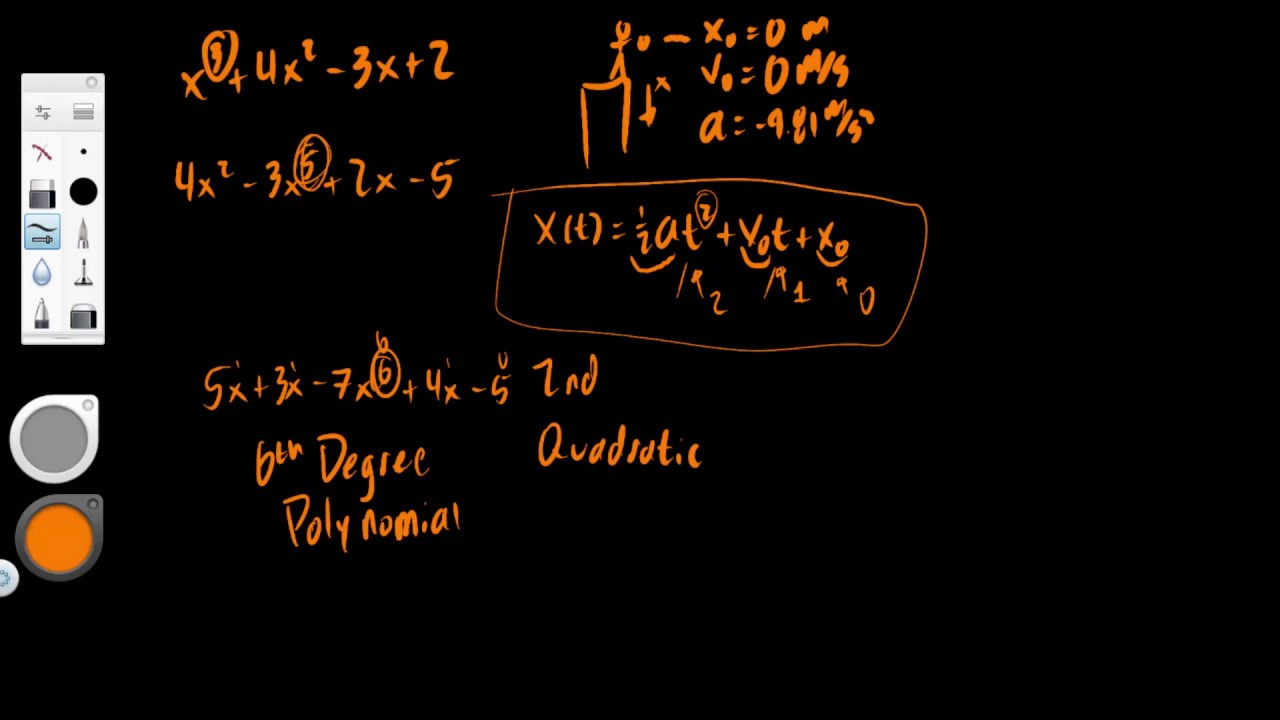 x³ + 4x² - 3x + 2
4x² - 3x⁵ + 2x - 5
0 - x₀ = 0 m
v₀ = 0 m/s
x
a = -9.81 m/s²
x(t) = ½at² + v₀t + x₀
2 1 0
6
5x¹ + 3x¹ - 7x⁶ + 4x¹ - 5⁰
6th Degree
Polynomial
2nd
Quadratic